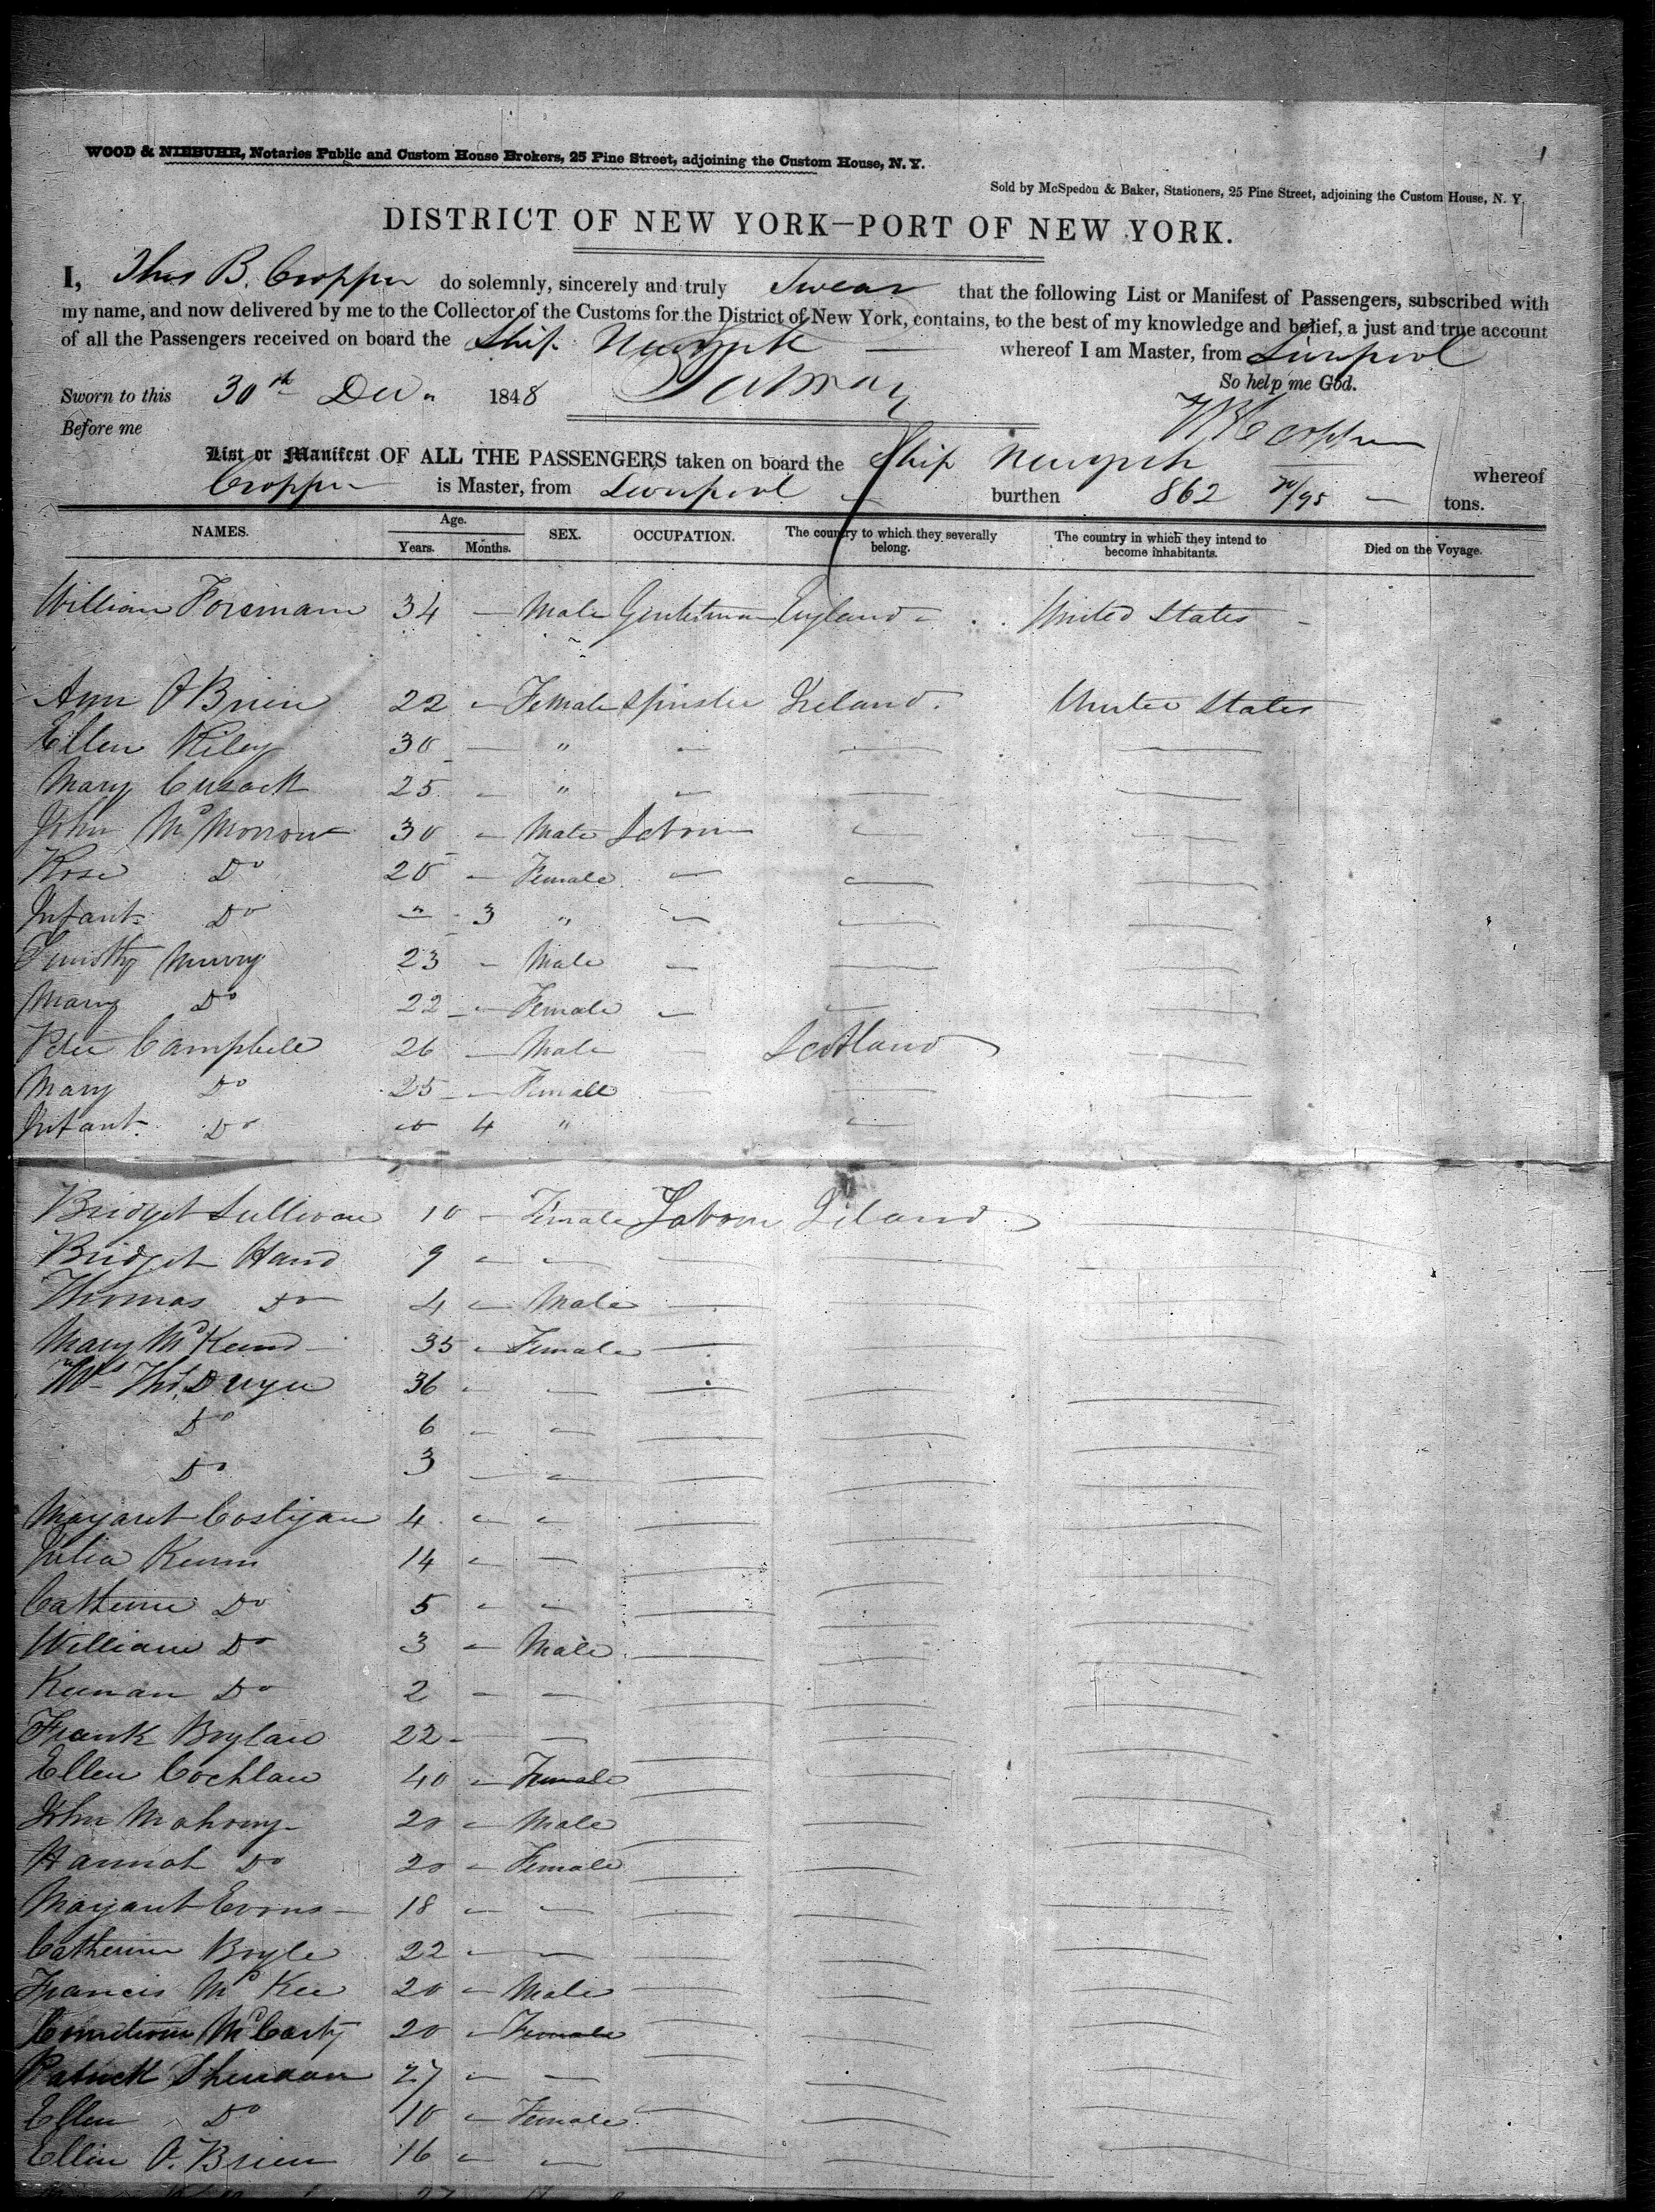 1
WOOD & NIEBUHR, Notaries Public and Custom House Brokers, 25 Pine Street, adjoining the Custom House, N. Y.
Sold by McSpedon & Baker, Stationers, 25 Pine Street, adjoining the Custom House, N. Y.
DISTRICT OF NEW YORK—PORT OF NEW YORK.
I, Thos B. Cropper do solemnly, sincerely and truly Swear that the following List or Manifest of Passengers, subscribed with
my name, and now delivered by me to the Collector of the Customs for the District of New York, contains, to the best of my knowledge and belief, a just and true account
of all the Passengers received on board the Ship New York whereof I am Master, from Liverpool
So help me God.
Sworn to this 30th Dec. 1848
Before me
List or Manifest OF ALL THE PASSENGERS taken on board the Ship New York whereof
Cropper is Master, from Liverpool burthen 862 /95 tons.
NAMES. Age. SEX. OCCUPATION. The country to which they severally belong. The country in which they intend to become inhabitants. Died on the Voyage.
Years. Months.
William Foreman 34 — Male Gentleman England United States
Ann O'Brien 22 Female Spinster Ireland. United States
Ellen Riley 30 — "
Mary Cusack 25 "
John McMorrow 30 Male Labour
Rose Do 20 Female
Infant Do " 3 "
Timothy Murry 23 Male
Mary Do 22 Female
Peter Campbell 26 Male Scotland
Mary Do 25 Female
Infant Do 4 "
Bridget Sullivan 10 Female Labour Ireland
Bridget Hand 9
Thomas Do 4 Male
Mary McKeund 35 Female
Mrs Thos. Dwyer 36
Do 6
Do 3
Margaret Costigan 4
Julia 14
Catherine Do 5
William Do 3 Male
Keenan Do 2
Frank Boylan 22
Ellen Cochlan 40 Female
John Mahony 20 Male
Hannah Do 20 Female
Margaret Evons 18
Catherine Boyle 22
Francis McKee 20 Male
McCarty 20 Female
Patrick Sheridan 27
Ellen Do 10 Female
Ellin O.Brien 16